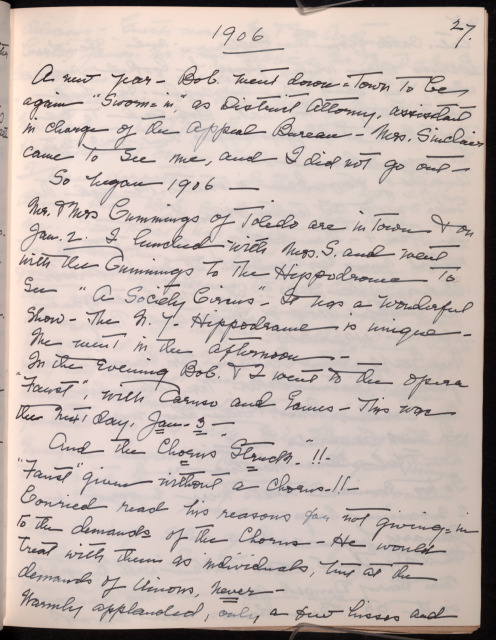 27.
1906
A new year - Bob. went down=Town to be,
again "Sworn=in," as District Attorney, assistant
in charge of the Appeal Bureau - Mrs. Sinclair
came to see me, and I did not go out -
So began 1906 —
Mr. & Mrs Cummings of Toledo are in Town & on
Jan. 2. I lunched with Mrs. S. and went
with the Cummings to The Hippodrome to
see "A Society Circus" - It was a wonderful
show - The N. Y. Hippodrome is unique -
We went in the afternoon --
In the Evening Bob. & I went to the opera
"Faust", with Caruso and Eames - This was
the next day, Jan. 3 -
And the Chorus "Struck."!!-
"Faust" given without a Chorus-!!-
Conried read his reasons for not giving=in
to the demands of the Chorus - He would
treat with them as individuals, but at the
demands of Unions, never -
Warmly applauded, only a few hisses and